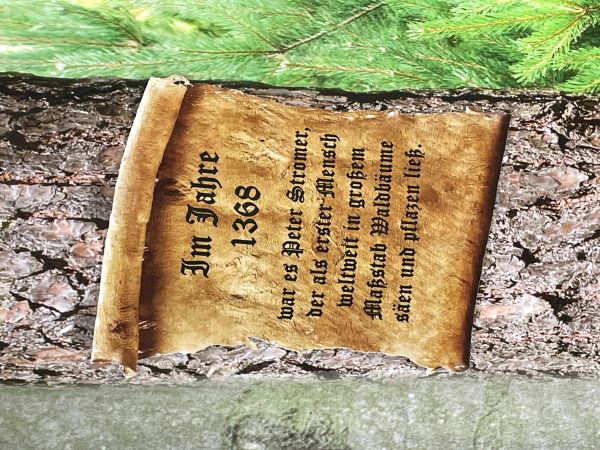 Im Jahre
1368
war es Peter Stromer,
der als erster Mensch
weltweit in großem
Maßstab Waldbäume
säen und pflazen ließ.